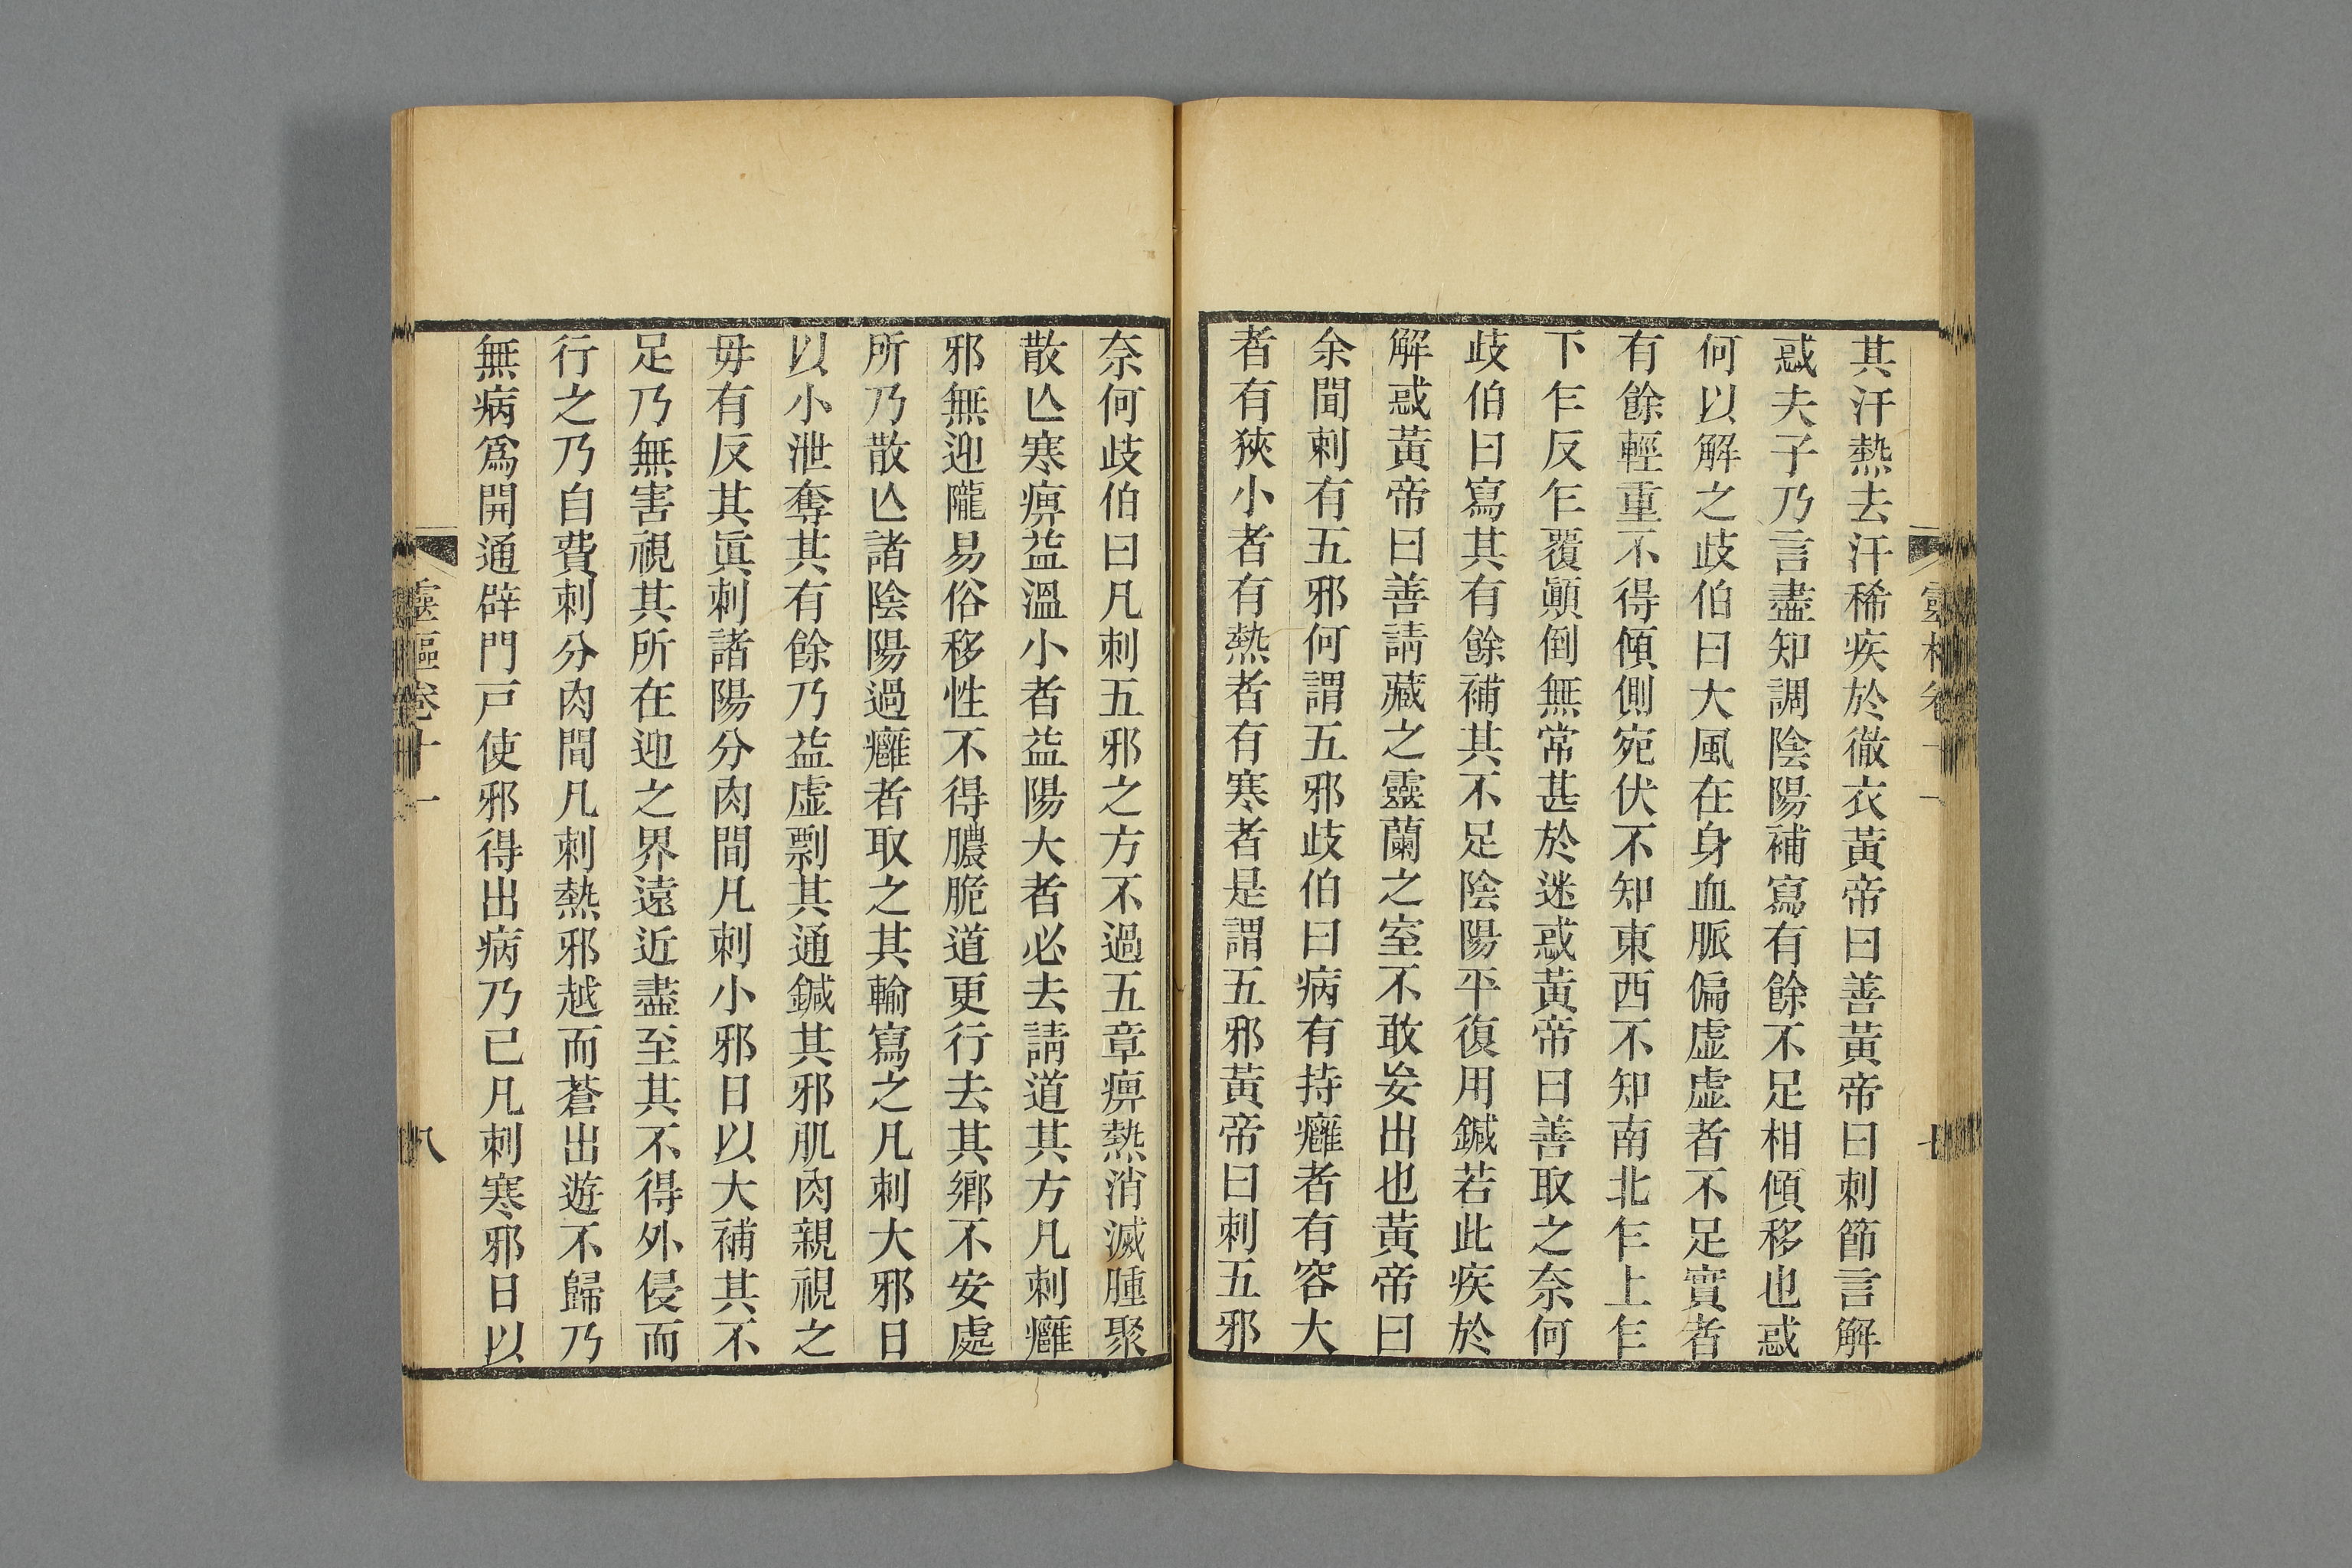 其汗熱去汗稀疾於徹衣黃帝曰善黃帝曰刺節言解
惑夫子乃言盡知調陰陽補寫有餘不足相傾移也惑
何以解之歧伯曰大風在身血脈偏虛虛者不足實者
有餘輕重不得傾側宛伏不知東西不知南北乍上乍
下乍反乍覆顚倒無常甚於迷惑黃帝曰善取之奈何
歧伯曰寫其有餘補其不足陰陽平復用鍼若此疾於
解惑黃帝曰善請藏之靈蘭之室不敢妄出也黃帝曰
余聞刺有五邪何謂五邪歧伯曰病有持癰者有容大
者有狹小者有熱者有寒者是謂五邪黃帝曰刺五邪
奈何歧伯曰凡刺五邪之方不過五章痹熱消滅腫聚
散亾寒痹益溫小者益陽大者必去請道其方凡刺癰
邪無迎隴易俗移性不得膿脆道更行去其鄉不安處
所乃散亾諸陰陽過癰者取之其輸寫之凡刺大邪日
以小泄奪其有餘乃益虛剽其通鍼其邪肌肉親視之
毋有反其眞刺諸陽分肉間凡刺小邪日以大補其不
足乃無害視其所在迎之界遠近盡至其不得外侵而
行之乃自費刺分肉間凡刺熱邪越而蒼出遊不歸乃
無病爲開通辟門戸使邪得出病乃已凡刺寒邪日以
靈樞卷十一
八